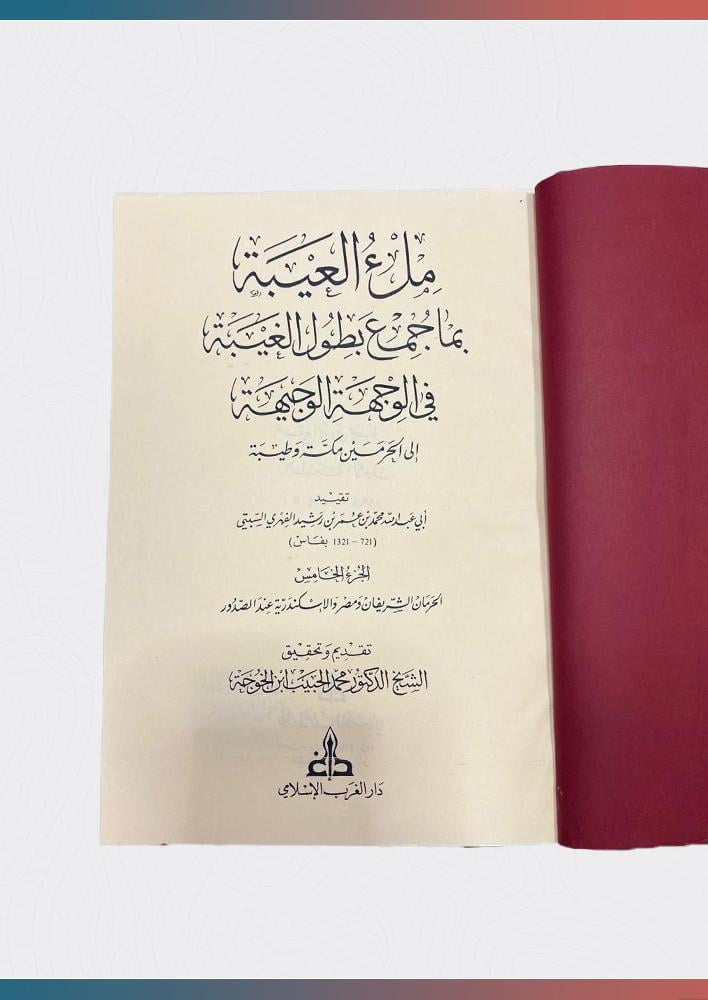 مِلْءُ العَيْبَة
بما جُمِعَ بطُولِ الغَيْبَة
في الوِجْهَةِ الوَجيهَة
إلى الحَرَمَيْن مكّة وَطيبَة
تقييد
أبي عبد الله محمّد بن عمر بن رشيد الفهري السبتي
(721 – 1321 بفاس)
الجزء الخامس
الحرمان الشريفان ومصر والإسكندرية عند الصّدور
تقديم وتحقيق
الشيخ الدكتور محمد الحبيب ابن الخوجة
دار الغرب الإسلامي